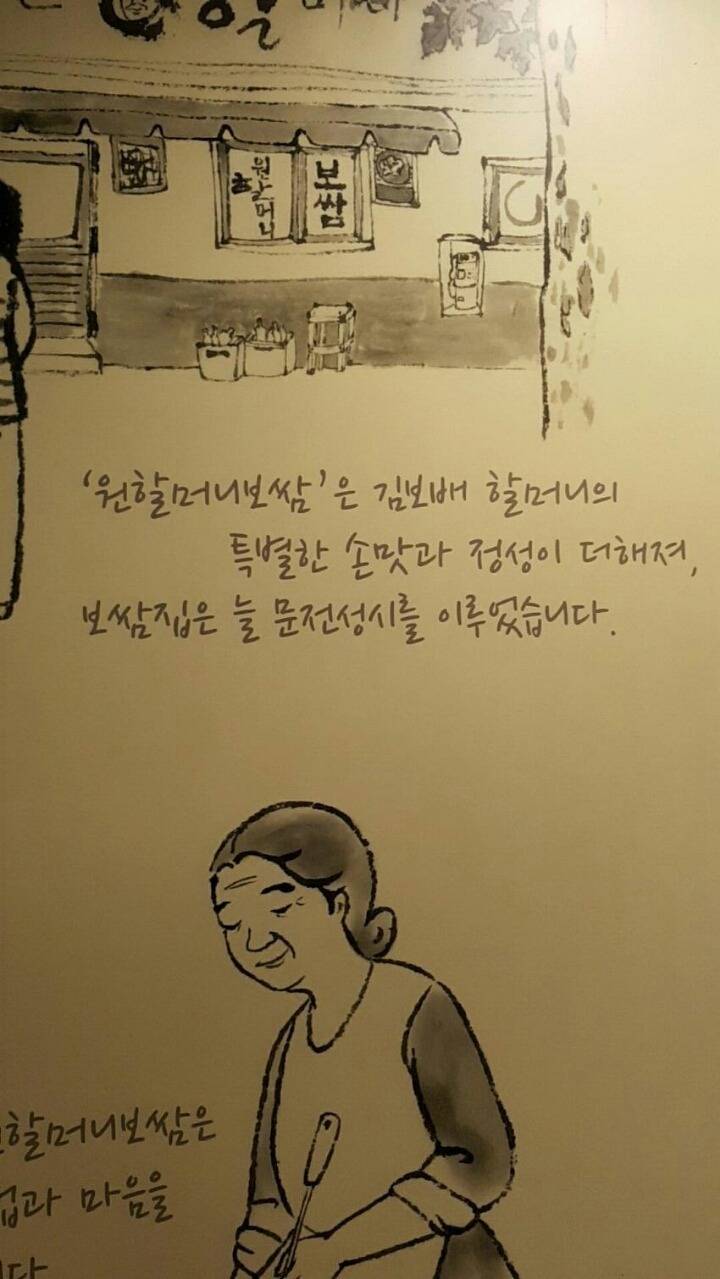 원할머니
보쌈
‘원할머니보쌈’은 김보배 할머니의
특별한 손맛과 정성이 더해져,
보쌈집은 늘 문전성시를 이루었습니다.
할머니보쌈은
마음을